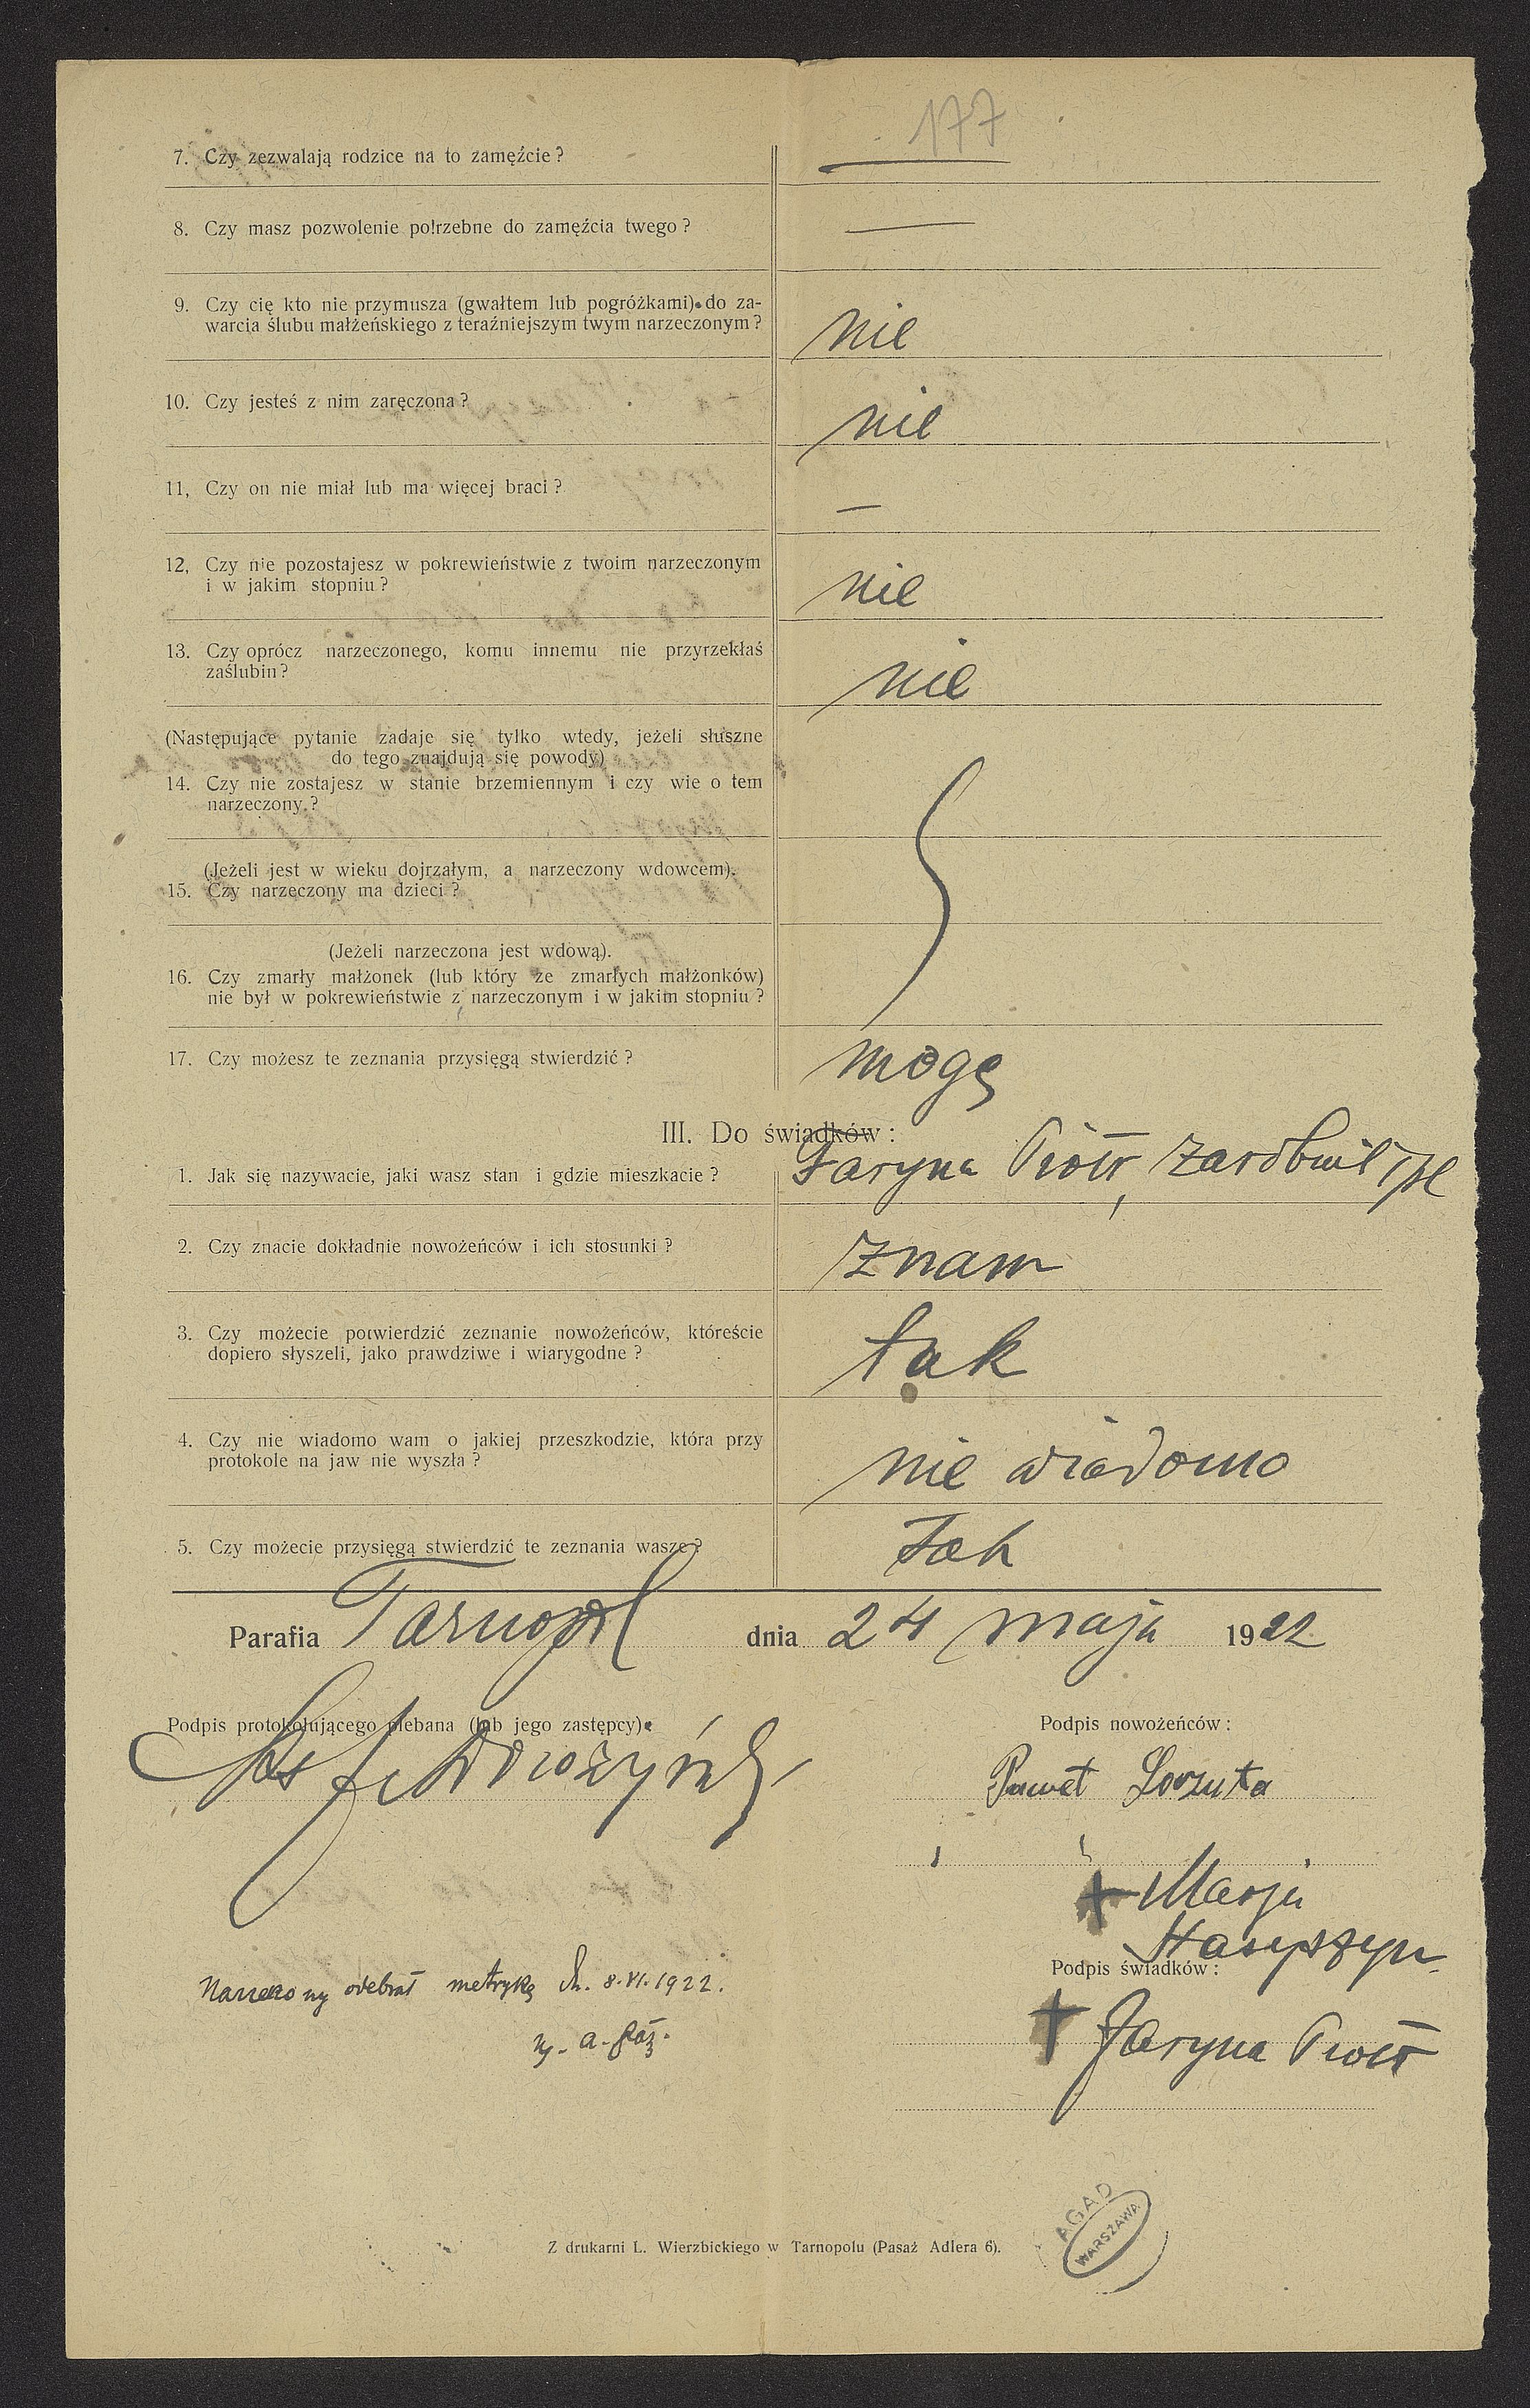 177
7. Czy zezwalają rodzice na to zamężcie?
8. Czy masz pozwolenie potrzebne do zamężcia twego?
9. Czy cię kto nie przymusza (gwałtem lub pogróżkami) do za-
warcia ślubu małżeńskiego z teraźniejszym twym narzeczonym?
nie
10. Czy jesteś z nim zaręczona?
nie
11, Czy on nie miał lub ma więcej braci?
—
12, Czy nie pozostajesz w pokrewieństwie z twoim narzeczonym
i w jakim stopniu?
nie
13. Czy oprócz narzeczonego, komu innemu nie przyrzekłaś
zaślubin?
nie
(Następujące pytanie zadaje się tylko wtedy, jeżeli słuszne
do tego znajdują się powody)
14. Czy nie zostajesz w stanie brzemiennym i czy wie o tem
narzeczony?
(Jeżeli jest w wieku dojrzałym, a narzeczony wdowcem).
15. Czy narzeczony ma dzieci?
(Jeżeli narzeczona jest wdową).
16. Czy zmarły małżonek (lub który ze zmarłych małżonków)
nie był w pokrewieństwie z narzeczonym i w jakim stopniu?
17. Czy możesz te zeznania przysięgą stwierdzić?
mogę
III. Do świadków:
1. Jak się nazywacie, jaki wasz stan i gdzie mieszkacie?
Jaryna Piotr,
2. Czy znacie dokładnie nowożeńców i ich stosunki?
znam
3. Czy możecie potwierdzić zeznanie nowożeńców, któreście
dopiero słyszeli, jako prawdziwe i wiarygodne?
tak
4. Czy nie wiadomo wam o jakiej przeszkodzie, która przy
protokole na jaw nie wyszła?
nie wiadomo
5. Czy możecie przysięgą stwierdzić te zeznania wasze?
Tak
Parafia Tarnopol dnia 24 maja 1922
Podpis protokołującego plebana (lub jego zastępcy)
Podpis nowożeńców:
Ks
Paweł
+ Marja
Podpis świadków:
Narzeczony odebrał metrykę dn. 8.VI.1922.
+ Jaryna Piotr
Z drukarni L. Wierzbickiego w Tarnopolu (Pasaż Adlera 6).
AGAD
WARSZAWA